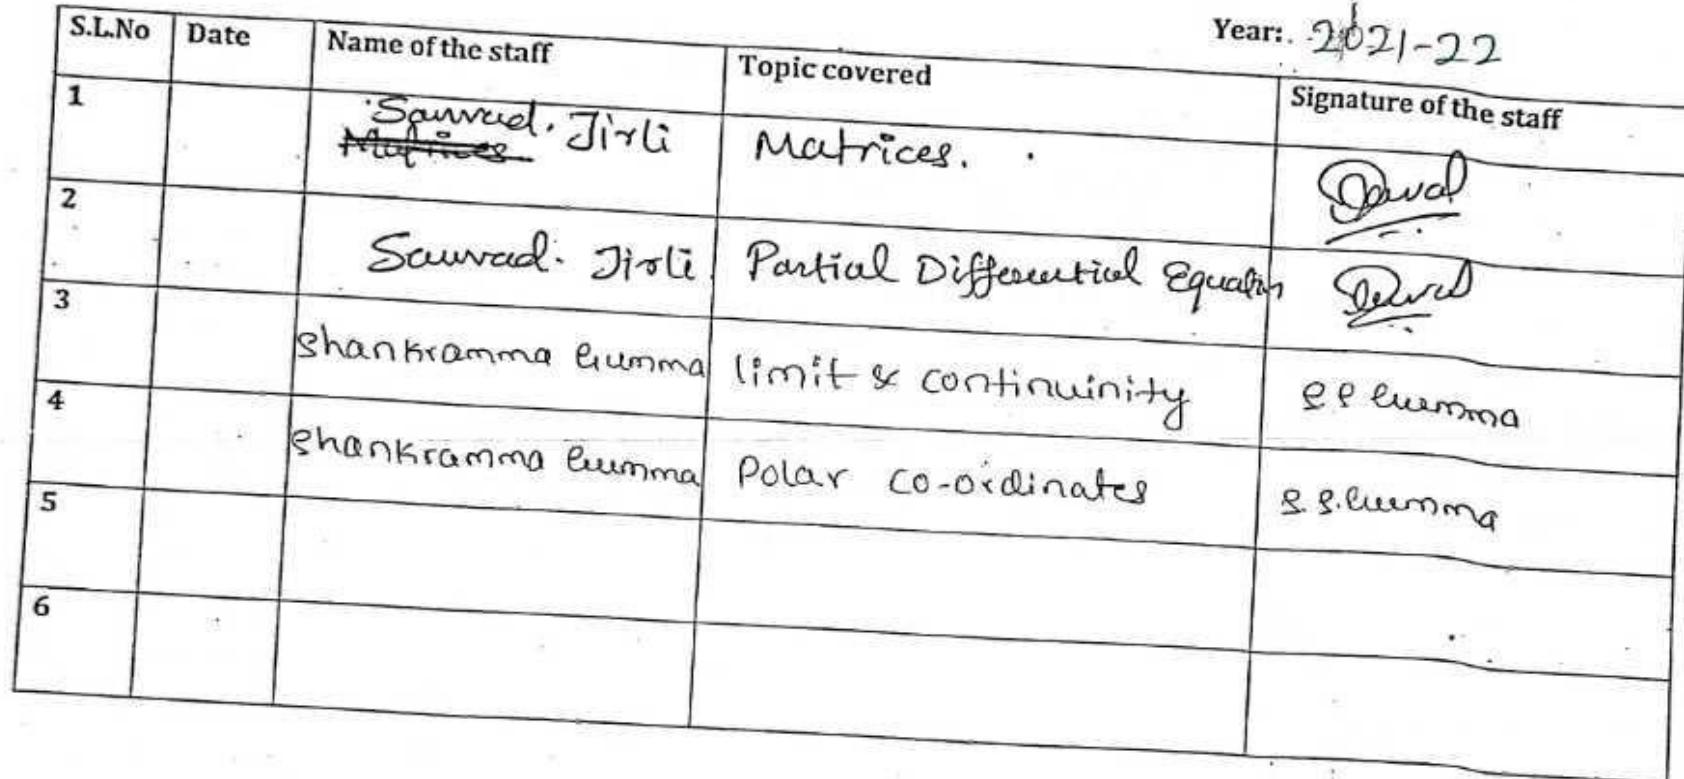 Year: 2021-22
S.L.No Date Name of the staff Topic covered Signature of the staff
1 Sauvad. Jirli Matrices.
2 Sauvad. Jirli. Partial Differential Equation
3 Shankramma Gumma limit & continuinity S S Gumma
4 Shankramma Gumma Polar co-ordinates S. S. Gumma
5
6